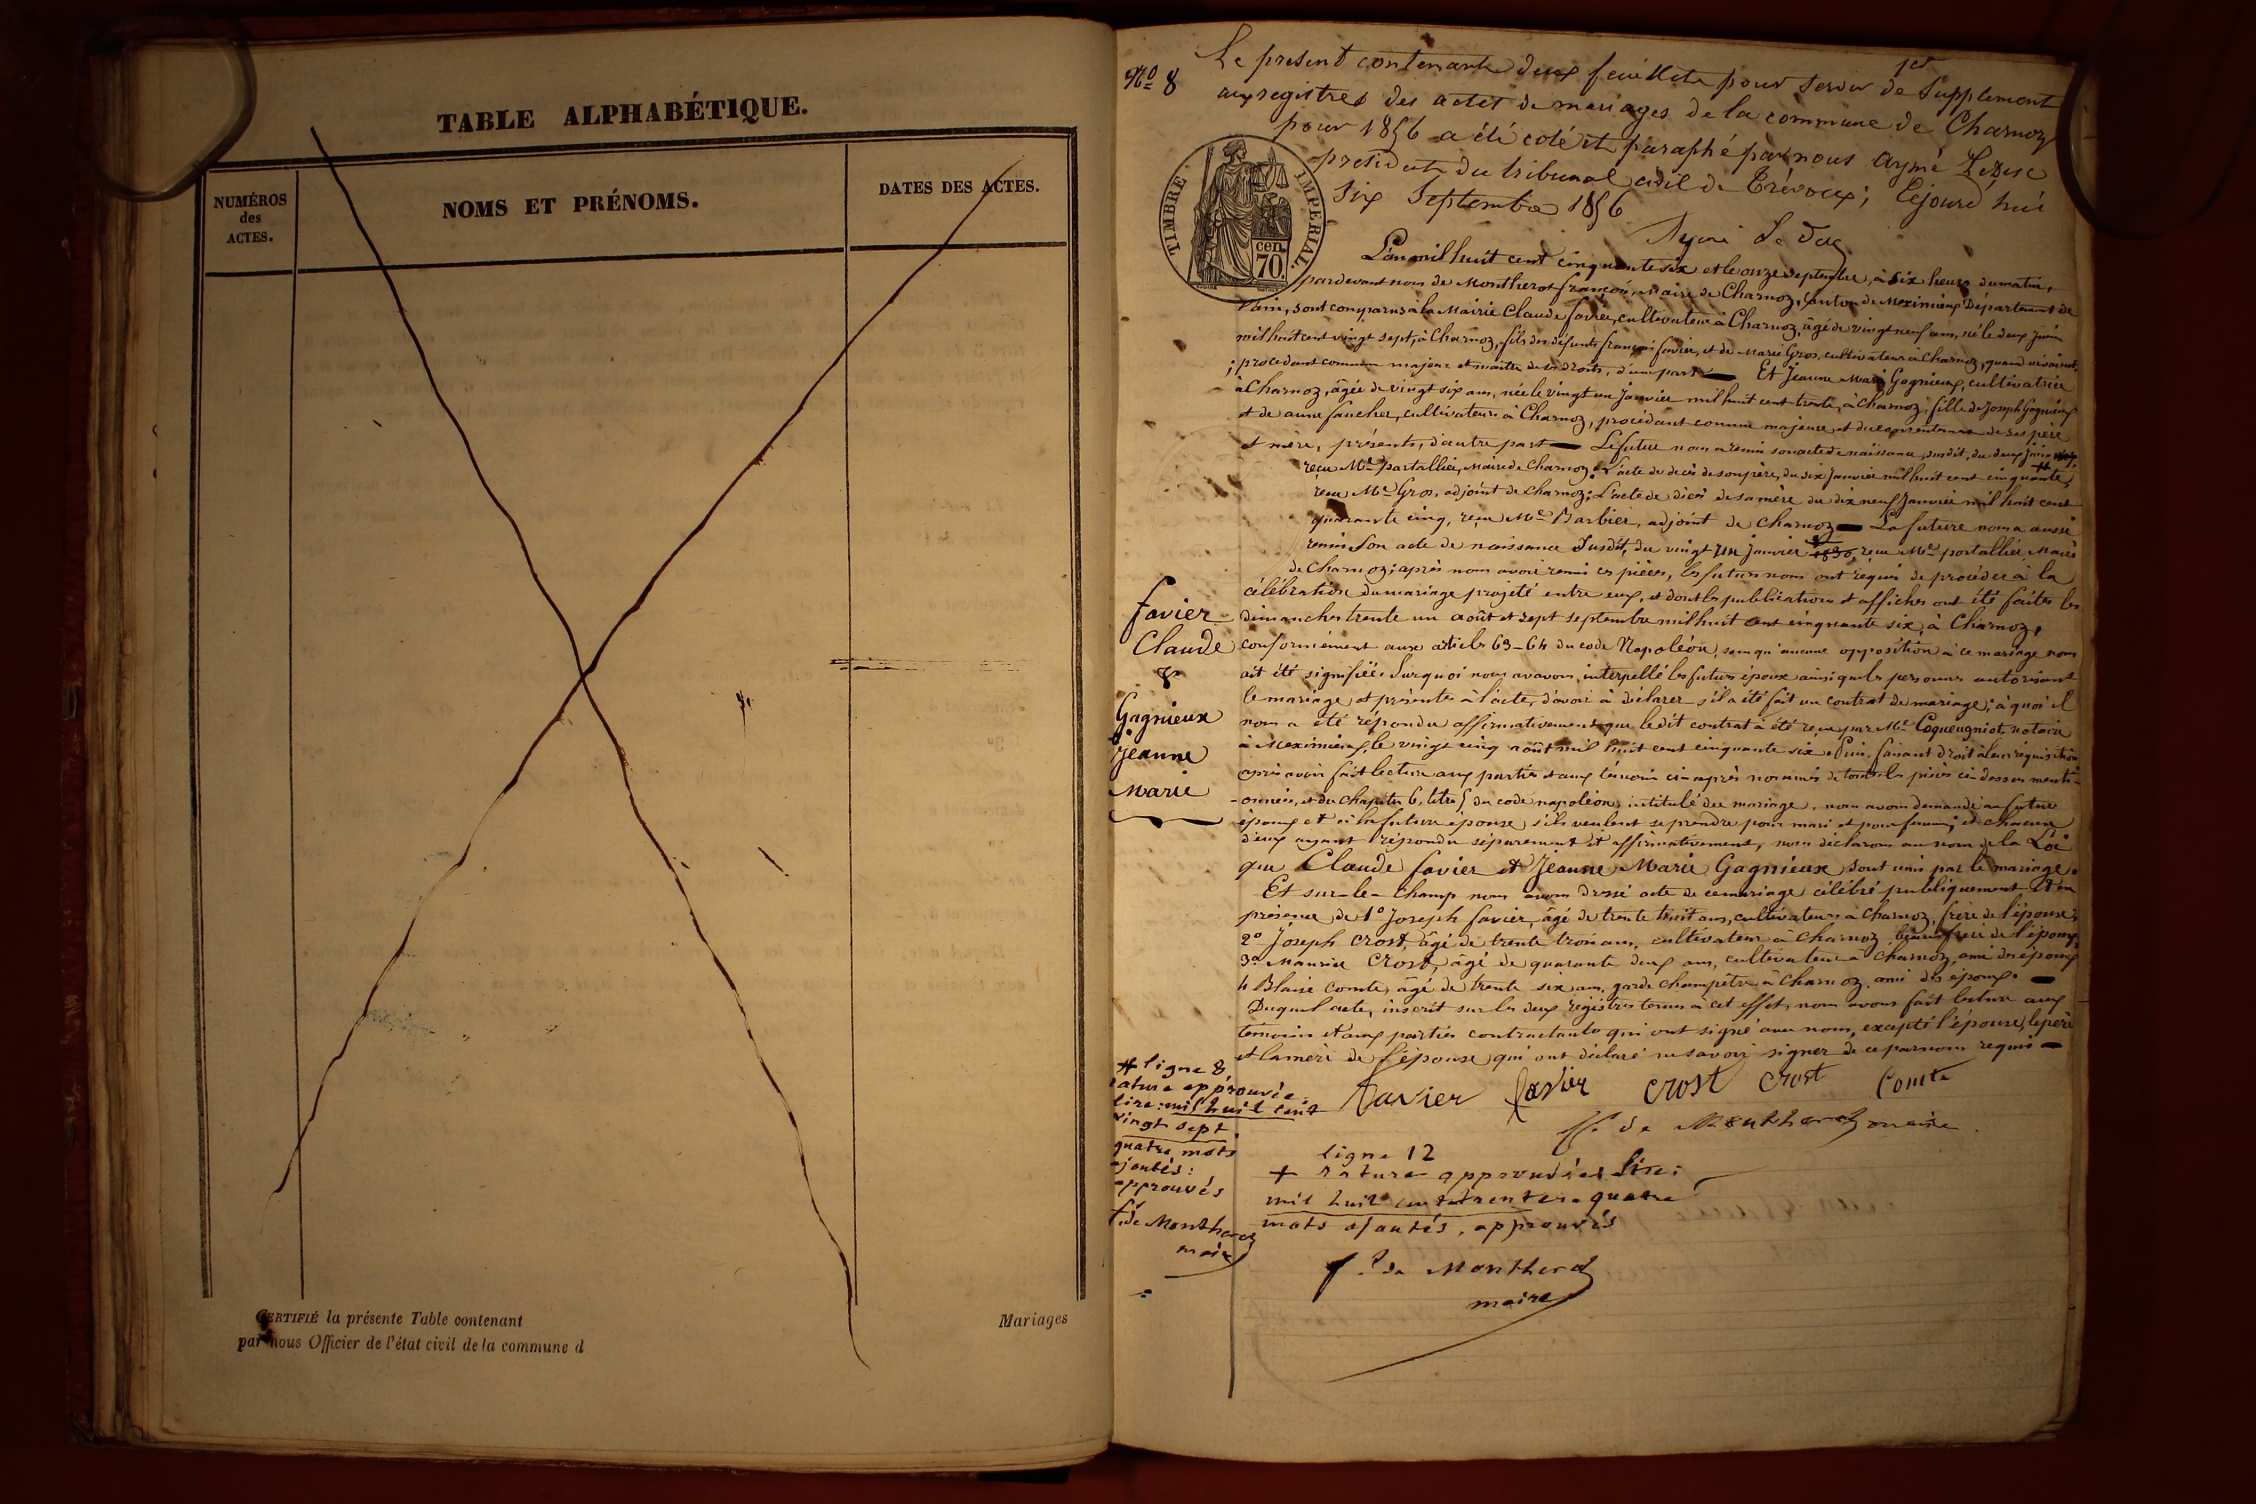 TABLE ALPHABÉTIQUE.
NUMÉROS
des
ACTES.
NOMS ET PRÉNOMS.
DATES DES ACTES.
CERTIFIÉ la présente Table contenant
Mariages
par nous Officier de l'état civil de la commune d
No 8
Le present contenant deux feuillets pour servir de Supplement
1er
aux registres des actes de mariages de la commune de Charnoz
pour 1856 a été coté et paraphé par nous Aymé
président du tribunal civil de Trévoux; Cejourd'hui
Six Septembre 1856
TIMBRE IMPERIAL.
cen.
70.
L'an mil huit cent cinquante six et le onze septembre, à six heures du matin,
pardevant nous de Montherot françois, maire de Charnoz, canton de Meximieux Département de
l'ain, sont comparus à la Mairie Claude favier, cultivateur à Charnoz, âgé de vingt neuf ans, né le deux juin
mil huit cent vingt sept, à Charnoz, fils des défunts françois favier, et de Marie Gros, cultivateurs à Charnoz, quand vivaient,
; procédant comme majeur et maître de ses droits, d'une part — Et Jeanne Marie Gagnieux, cultivatrice
à Charnoz, âgée de vingt six ans, née le vingt un janvier mil huit cent trente, à Charnoz, fille de Joseph Gagnieux
et de anne faucher, cultivateurs à Charnoz, procédant comme majeure et du consentement de ses père
et mère, présents, d'autre part — Le futur nous a remis son acte de naissance, susdit, du deux juin #
reçu Mr portallier, Maire de Charnoz; L'acte de décès de son père, du six Janvier mil huit cent cinquante,
reçu Mr Gros, adjoint de Charnoz; L'acte de décès de sa mère du dix neuf Janvier mil huit cent
quarante cinq, reçu Mr Barbier, adjoint de Charnoz — La future nous a aussi
remis son acte de naissance susdit, du vingt un janvier 1830, reçu Mr portallier Maire
de Charnoz; après nous avoir remis ces pièces, les futurs nous ont requis de procéder à la
célébration du mariage projeté entre eux, et dont les publications et affiches ont été faites les
dimanches trente un août et sept septembre mil huit cent cinquante six, à Charnoz,
conformément aux articles 63-64 du code Napoléon, sans qu'aucune opposition à ce mariage nous
ait été signifiée. Surquoi nous avons interpellé les futurs époux ainsi que les personnes autorisant
le mariage et présentes à l'acte, d'avoir à déclarer s'il a été fait un contrat de mariage; à quoi il
nous a été répondu affirmativement que ledit contrat a été reçu par Me Coqueugniot, notaire
à Meximieux, le vingt cinq août mil huit cent cinquante six. Puis, faisant droit à leur réquisition
après avoir fait lecture aux parties et aux témoins ci-après nommés de toutes les pièces ci-dessus menti-
-onnées, et du Chapitre 6, titre 5 du code napoléon, intitulé du mariage, nous avons demandé au futur
époux et à la future épouse s'ils veulent se prendre pour mari et pour femme; et chacun
d'eux ayant répondu séparément et affirmativement, nous déclarons au nom de la Loi
que Claude favier et Jeanne Marie Gagnieux sont unis par le mariage.
Et sur-le-champ nous avons dressé acte de ce mariage célébré publiquement et en
présence de 1o Joseph favier, âgé de trente huit ans, cultivateur à Charnoz, frère de l'époux;
2o Joseph Crost, âgé de trente trois ans, cultivateur à Charnoz, beau frère de l'époux,
3o Maurice Crost, âgé de quarante deux ans, cultivateur à Charnoz, ami des époux
4 Blaise Comte, âgé de trente six ans, garde champêtre à Charnoz, ami des époux. —
Duquel acte, inscrit sur les deux registres tenus à cet effet, nous avons fait lecture aux
témoins et aux parties contractantes qui ont signé avec nous, excepté l'épouse, le père
et la mère de l'épouse qui ont déclaré ne savoir signer de ce par nous requis —
favier
Claude
&
Gagnieux
Jeanne
Marie
Favier favier Crost Crost Comte
fs. de Montherot maire.
# ligne 8
rature approuvée.
lire: mil huit cent
vingt sept.
quatre mots
ajoutés:
approuvés
f. de Montherot
maire
ligne 12
+ rature approuvée: Lire:
mil huit cent trente. quatre
mots ajoutés, approuvés
f. de Montherot
maire